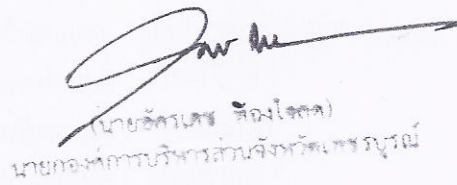 (นายอัครเดช ทองใจสด)
นายกองค์การบริหารส่วนจังหวัดเพชรบูรณ์